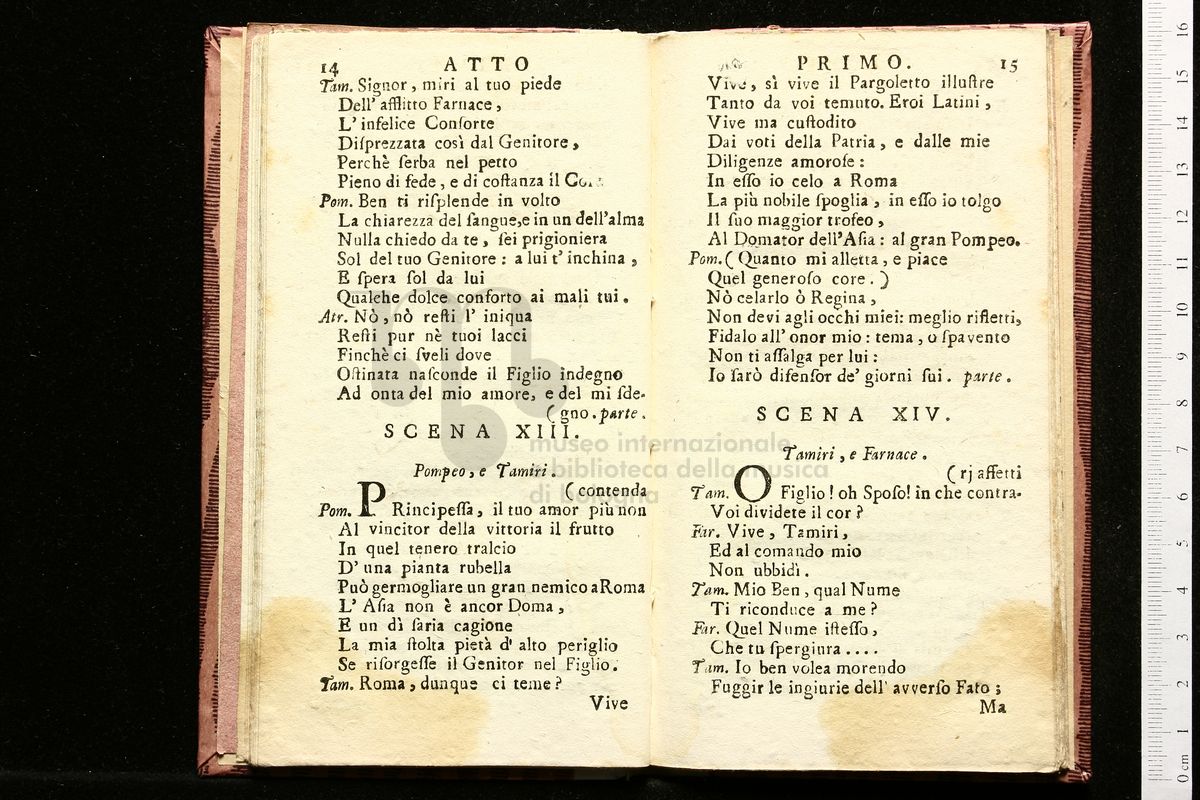 14 ATTO
Tam. Signor, miri al tuo piede
Dell' afflitto Farnace,
L' infelice Conſorte
Diſprezzata così dal Genitore,
Perchè ſerba nel petto
Pieno di fede, e di coſtanza il
Pom. Ben ti riſplende in volto
La chiarezza del ſangue, e in un dell'alma
Nulla chiedo da te, ſei prigioniera
Sol del tuo Genitore: a lui t' inchina,
E ſpera ſol da lui
Qualche dolce conforto ai mali tui.
Atr. Nò, nò reſti l' iniqua
Reſti pur nè tuoi lacci
Finchè ci ſveli dove
Oſtinata naſconde il Figlio indegno
Ad onta del mio amore, e del mi ſde-
(gno. parte.
SCENA XIII.
Pompeo, e Tamiri.
(contenda
Pom. PRincipeſſa, il tuo amor più non
Al vincitor della vittoria il frutto
In quel tenero tralcio
D' una pianta rubella
Può germogliare un gran nemico a Roma
L' Aſia non è ancor Doma,
E un dì ſaria cagione
La mia ſtolta pietà d' alto periglio
Se riſorgeſſe il Genitor nel Figlio.
Tam. Roma, dunque ci teme?
Vive
PRIMO. 15
Vive, sì vive il Pargoletto illuſtre
Tanto da voi temuto. Eroi Latini,
Vive ma cuſtodito
Dai voti della Patria, e dalle mie
Diligenze amoroſe:
In eſſo io celo a Roma
La più nobile ſpoglia, in eſſo io tolgo
Il ſuo maggior trofeo,
Al Domator dell'Aſia: al gran Pompeo.
Pom. (Quanto mi alletta, e piace
Quel generoſo core.)
Nò celarlo ò Regina,
Non devi agli occhi miei: meglio rifletti,
Fidalo all' onor mio: tema, o ſpavento
Non ti aſſalga per lui:
Io ſarò difenſor de' giorni ſui. parte.
SCENA XIV.
Tamiri, e Farnace.
(rj affetti
Tam. O Figlio! oh Spoſo! in che contra-
Voi dividete il cor?
Far. Vive, Tamiri,
Ed al comando mio
Non ubbidì.
Tam. Mio Ben, qual Nume
Ti riconduce a me?
Far. Quel Nume iſteſſo,
Che tu ſpergiura....
Tam. Io ben volea morendo
Fuggir le ingiurie dell' avverſo Fato;
Ma
museo internazionale
biblioteca della musica
di bologna
0 cm 1 2 3 4 5 6 7 8 9 10 11 12 13 14 15 16